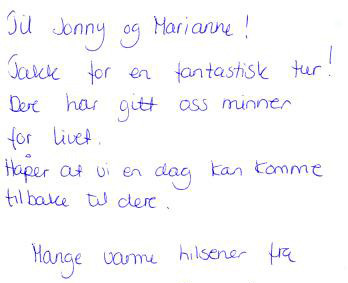 Til Jonny og Marianne!
Takk for en fantastisk tur!
Dere har gitt oss minner
for livet.
Håper at vi en dag kan komme
tilbake til dere.
Mange varme hilsener fra